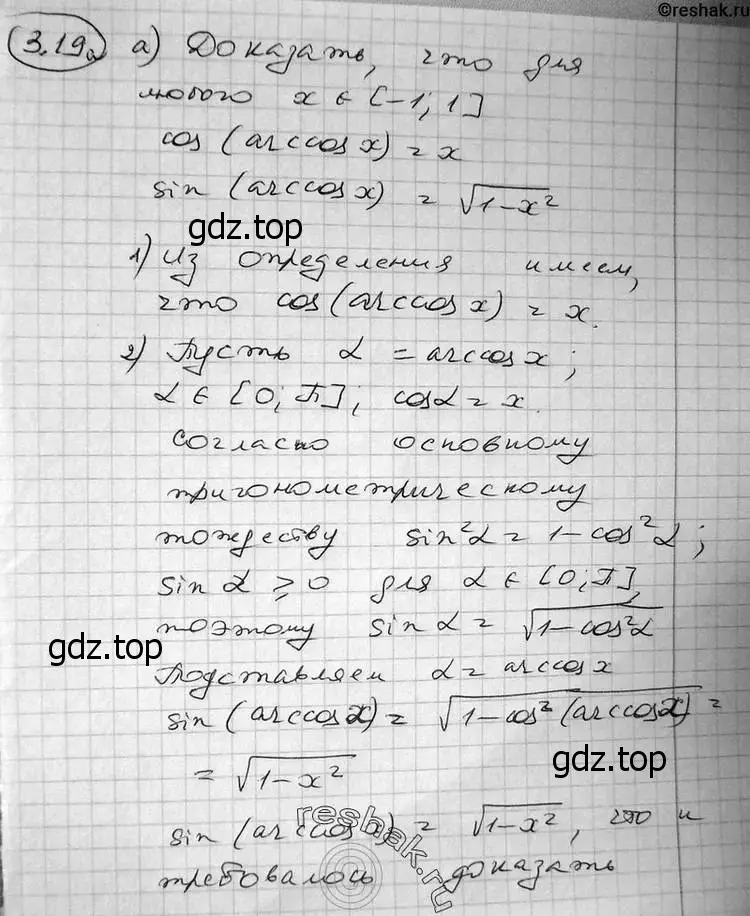 ©reshak.ru
3.19а а) Доказать, что для
любого x ∈ [-1; 1]
cos (arccos x) = x
sin (arccos x) = √1-x²
gdz.top
1) Из определения имеем,
что cos(arccos x) = x.
2) Пусть α = arccos x;
α ∈ [0; π]; cosα = x.
согласно основному
тригонометрическому
тождеству sin²α = 1-cos²α;
sin α ⩾ 0 для α ∈ [0; π],
поэтому sin α = √1-cos²α
gdz.top
Подставляем α = arccos x
sin (arccos x) = √1-cos² (arccos x) =
= √1-x²
gdz.top
sin (arccos x) = √1-x², что и
требовалось доказать
reshak.ru